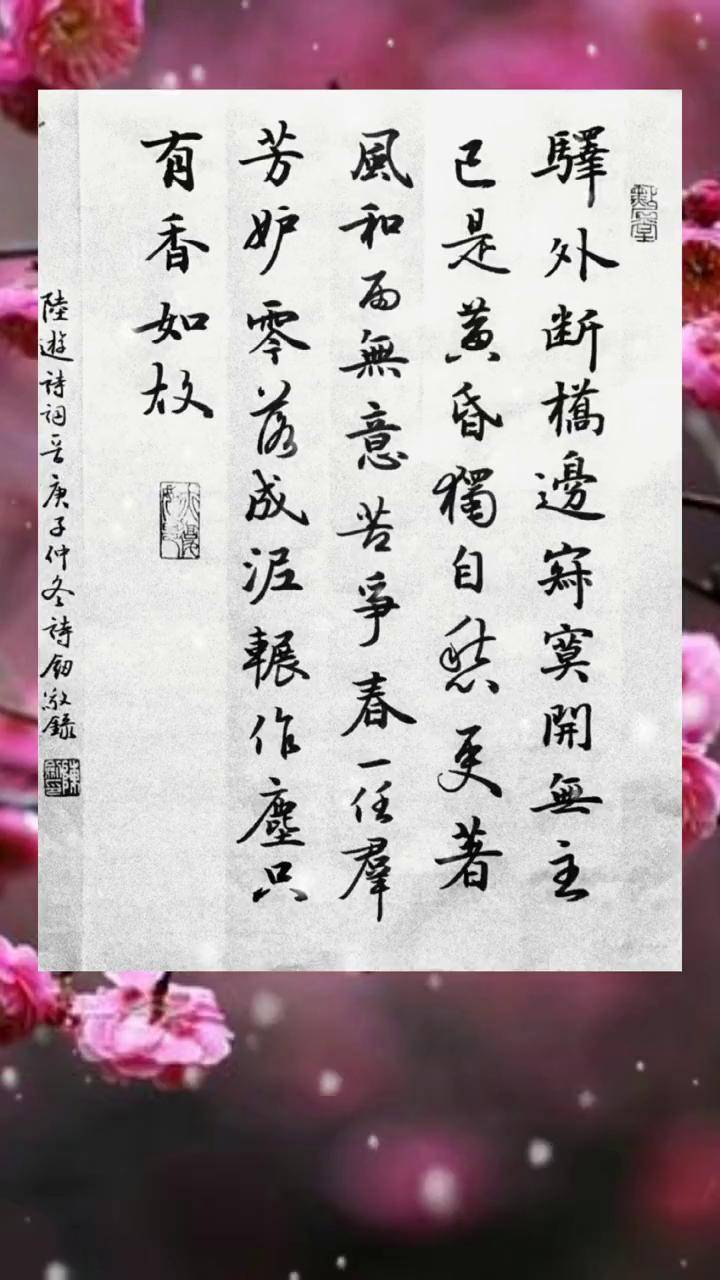 驛外断橋邊寂寞開無主
已是黃昏獨自愁更著
風和雨無意苦爭春一任羣
芳妒零落成泥輾作塵只
有香如故
陸遊詩詞庚子仲冬詩釰敬錄